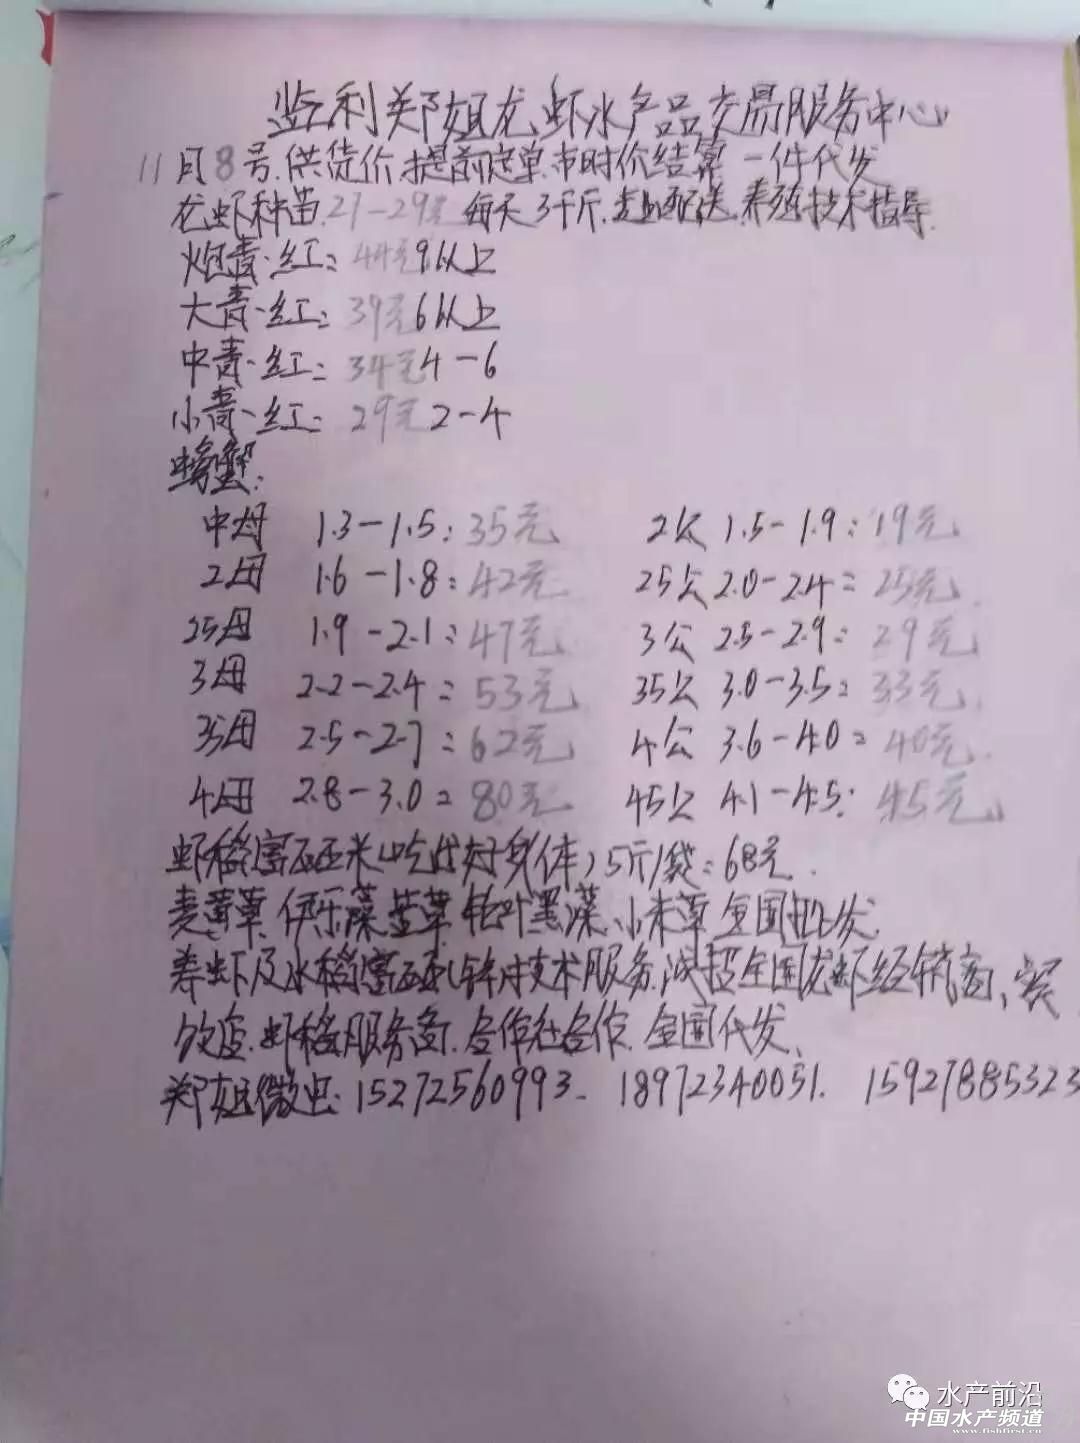 监利郑姐龙虾水产品交易服务中心
11月8号.供货价.提前定单.市时价结算 一件代发
龙虾种苗.27-29元 每天3千斤. 配送.养殖技术指导.
炮青·红: 44元9以上
大青·红: 39元6以上
中青·红: 34元4-6
小青·红: 29元2-4
螃蟹:
中母 1.3-1.5:35元 2公 1.5-1.9:19元
2母 1.6-1.8:42元 25公 2.0-2.4:25元
25母 1.9-2.1:47元 3公 2.5-2.9:29元
3母 2.2-2.4:53元 35公 3.0-3.5:33元
35母 2.5-2.7:62元 4公 3.6-4.0:40元
4母 2.8-3.0:80元 45公 4.1-4.5:45元
虾稻富硒米(吃出好身体)5斤/袋:68元.
伊乐藻 轮叶黑藻.小米草 全国批发.
养虾及水稻富硒 技术服务.诚招全国龙虾经销商、
饭店.虾稻服务商.合作社合作.全国代发、
郑姐微电:15272560993- 18972340051. 15927885323
水产前沿
中国水产频道
www.fishfirst.cn